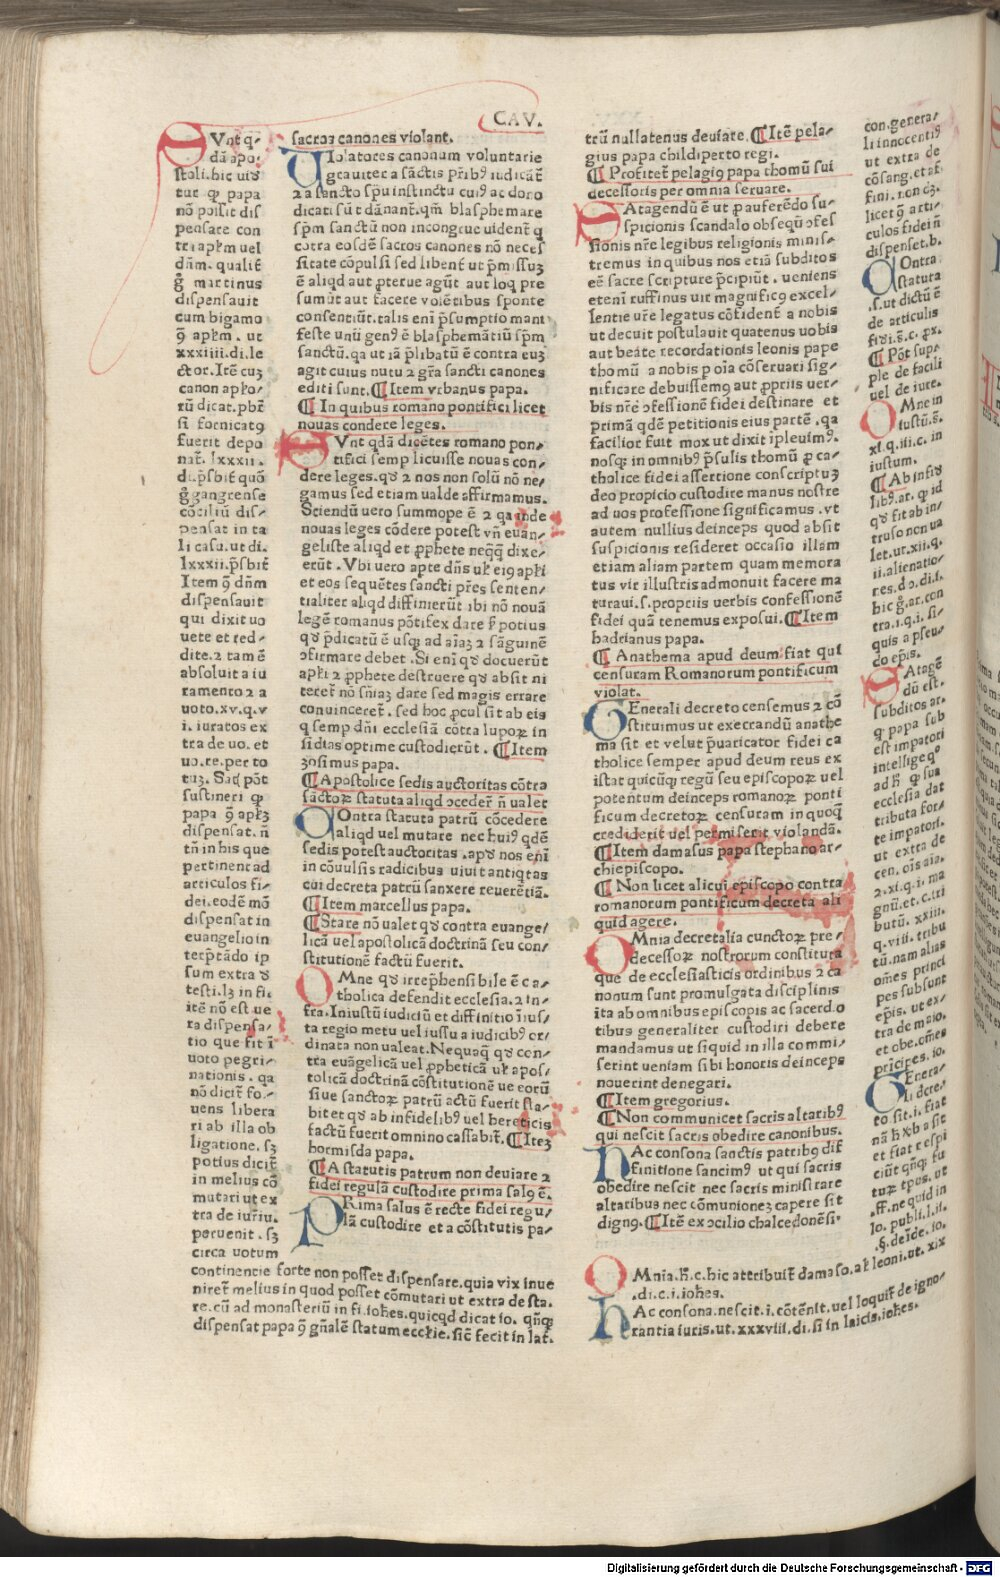 CAV.
SVnt q̄-
dā apo-
stoli. hic uið
tut q̄ papa
nō possit dis
pensare con
tra apłm uel
dām. qualit̄
g̊ martinus
dispensauit
cum bigamo
ꝯ apłm. ut
xxxiiii. di. le
ctor. Itē cuʒ
canon apło-
rū dicat. pbr̄
si fornicatꝰ
fuerit depo
nat̄. lxxxii.
di. p̄sbit̄ quō
g̊ gangrense
cōciliū dis-
pensat in ta
li casu. ut di.
lxxxii. p̄sbit̄
Item ꝙ dn̄m
dispensauit
qui dixit uo
uete et red-
dite. ꝛ tam ē
absoluit a iu
ramento ꝛ a
uoto. xv. q. v
i. iuratos ex
tra de uo. et
uo. re. per to
tuʒ. Sað pōt
sustineri ꝙ
papa ꝯ apłʒ
dispensat. n̄
tn̄ in his que
pertinent ad
articulos fi-
dei. eodē mō
dispensat in
euangelio in
terp̄tādo ip
sum extra ð
testi. lʒ in fi.
itē nō est ue
ra dispensa-
tio que fit ī
uoto pegri-
nationis. qa
nō dicit̄ fo-
uens libera
ri ab illa ob
ligatione. sʒ
potius dicit̄
in melius cō
mutari ut ex
tra de iuriu.
peruenit. sʒ
circa uotum
continentie forte non posset dispensare. quia vix inue
niret̄ melius in quod posset cōmutari ut extra de sta.
re. cū ad monasteriū in fi. iohes. quicqd dicat io. qn̄qʒ
dispensat papa ꝯ gn̄alē statum ecclie. sic̄ fecit in lat.
sacroʒ canones violant.
UIolatores canonum voluntarie
grauiter a sāctis pr̄ibꝰ iudicāt̄
ꝛ a sancto sp̄u instinctu cuiꝰ ac doro
dicati sūt dānant̄. qm̄ blasphemare
sp̄m sanctū non incongrue uident̄ q
cōtra eosdē sacros canones nō neces
sitate cōpulsi sed libent̄ ut p̄missuʒ
ē aliqd aut ꝓterue agūt aut loq pre
sumūt aut facere volētibus sponte
consentiūt. talis enī p̄sumptio mani
feste unū genꝰ ē blasphemātiū sp̄m
sanctū. qa ut iā p̄libatū ē contra euʒ
agit cuius nutu ꝛ gr̄a sancti canones
editi sunt. ¶ Item vrbanus papa.
¶ In quibus romano pontifici licet
nouas condere leges.
SVnt qdā dicētes romano pon-
tifici semp licuisse nouas con-
dere leges. qð ꝛ nos non solū nō ne-
gamus sed etiam ualde affirmamus.
Sciendū uero summope ē ꝛ qa inde
nouas leges cōdere potest vn̄ euan-
geliste aliqd et ꝓphete neqq̄ dixe-
rūt. Vbi uero apte dn̄s ul̄ eiꝰ apłi
et eos sequētes sancti pr̄es senten-
tialiter aliqd diffinierūt ibi nō nouā
legē romanus pōtifex dare ꝑ potius
qð p̄dicatū ē usqʒ ad aīaʒ ꝛ sāguinē
ↄfirmare debet. Si enī qð docuerūt
apłi ꝛ ꝓphete destruere qð absit ni
teret̄ nō sn̄iaʒ dare sed magis errare
conuinceret̄. sed hoc ꝓcul sit ab eis
q semp dn̄i ecclesiā cōtra lupoꝝ in
sidias optime custodierūt. ¶ Item
ʒosimus papa.
¶ Apostolice sedis auctoritas cōtra
sāctoꝝ statuta aliqd ↄceder̄ n̄ ualet
COntra statuta patrū cōcedere
aliqd uel mutare nec huiꝰ qdē
sedis potest auctoritas. apð nos enī
in cōuulsis radicibus uiuit antiqtas
cui decreta patrū sanxere reuerētiā.
¶ Item marcellus papa.
¶ Stare nō ualet qð contra euange-
licā uel apostolicā doctrinā seu con-
stitutionē factū fuerit.
OMne qð irrep̄hensibile ē ca-
tholica defendit ecclesia. ꝛ in-
fra. Iniustū iudiciū et diffinitio iīus-
ta regio metu uel iussu a iudicibꝰ or-
dinata non ualeat. Nequaq̄ qð con-
tra euāgelicā uel ꝓpheticā ul̄ apos-
tolicā doctrinā cōstitutionē ue eorū
siue sanctoꝝ patrū actū fuerit sta-
bit et qð ab infidelibꝰ uel hereticis
factū fuerit omnino cassabit̄. ¶ Iteʒ
hormisda papa.
¶ A statutis patrum non deuiare ꝛ
fidei regulā custodire prima salꝰ ē.
PRima salus ē recte fidei regu-
lā custodire et a cōstitutis pa-
trū nullatenus deuiare. ¶ Itē pela-
gius papa childiperto regi.
¶ Profitet̄ pelagiꝰ papa thomū sui
decessoris per omnia seruare.
SAtagendū ē ut ꝓ auferēdo su-
spicionis scandalo obsequū ↄfes
sionis nr̄e legibus religionis minis-
tremus in quibus nos etiā subditos
eē sacre scripture p̄cipiūt. ueniens
etenī ruffinus uir magnificꝰ excel-
lentie ur̄e legatus cōfident̄ a nobis
ut decuit postulauit quatenus uobis
aut beate recordationis leonis pape
thomū a nobis p oīa cōseruari sig-
nificare debuissemꝰ aut ꝓpriis uer-
bis nr̄e ↄfessionē fidei destinare et
primā qdē petitionis eius partē. qa
facilior fuit mox ut dixit ipleuimꝰ.
nosqʒ in omnibꝰ p̄sulis thomū ꝓ ca-
tholice fidei assertione conscriptuʒ
deo propicio custodire manus nostre
ad uos professione significamus. vt
autem nullius deinceps quod absit
suspicionis resideret occasio illam
etiam aliam partem quam memora
tus vir illustris admonuit facere ma
turaui. s. propriis uerbis confessionē
fidei quā tenemus exposui. ¶ Item
hadrianus papa.
¶ Anathema apud deum fiat qui
censuram Romanorum pontificum
violat.
GEnerali decreto censemus ꝛ cō
stituimus ut execrandū anathe
ma sit et velut p̄uaricator fidei ca
tholice semper apud deum reus ex
istat quicūqʒ regū seu episcopoꝝ uel
potentum deinceps romanoꝝ ponti
ficum decretoꝝ censuram in quoqʒ
crediderit uel permiserit violandā.
¶ Item damasus papa stephano ar-
chiepiscopo.
¶ Non licet alicui episcopo contra
romanorum pontificum decreta ali
quid agere.
OMnia decretalia cunctoꝝ pre-
decessoꝝ nostrorum constituta
que de ecclesiasticis ordinibus ꝛ ca
nonum sunt promulgata disciplinis
ita ab omnibus episcopis ac sacerdo
tibus generaliter custodiri debere
mandamus ut si quid in illa commi-
serint ueniam sibi honoris deinceps
nouerint denegari.
¶ Item gregorius.
¶ Non communicet sacris altaribꝰ
qui nescit sacris obedire canonibus.
HAc consona sanctis patribꝰ dif
finitione sancimꝰ ut qui sacris
obedire nescit nec sacris ministrare
altaribus nec cōmunioneʒ capere sit
dignꝰ. ¶ Itē ex ↄcilio chalcedonēsi.
con. genera-
li innocentiꝰ
ut extra de
cōsang. et af.
fini. non dʒ.
licet ꝯ arti-
culos fidei n̄
dispenset. b.
COntra
statuta
.s. ut dictū ē
de articulis
fidei. s. c. px.
¶ Pōt supr
ple de facili
uel de iure.
OMne in
iustū. s.
xi. q. iii. c. in
iustum.
¶ Ab infið
libꝰ. ar. q id
qð fit ab in-
truso non ua
let. ut. xii. q.
ii. alienatio-
nes. di. di. i.
hic g̊. ar. con
tra. i. q. i. si-
quis a pseu-
do ep̄is.
SAtagē
dū est.
subditos ar.
q papa sub
est impatori
intellige qº
ad h̄ q̄ sua
ecclesia dat
tributa for-
te impatori.
ut extra de
cen. oīs aīa.
ꝛ. xi. q. i. ma
gnū. et. c. tri
butū. xxiii.
q. viii. tribu
tū. nam alias
om̄es princi
pes subsunt
ep̄is. ut ex-
tra de maio.
et obe. om̄es
prīcipes. io.
GEnera-
li dcre-
to sit. i. fiat
nā h̄ xb a sit
et fiat respi
ciūt qn̄qʒ fu
tuꝝ tp̄us. ut
.ff. ne quid in
lo. publi. l. ii.
.§. deīde. io.
OMnia. h̄. c. hic attribuit̄ damaso. al̄ leoni. ut. xix
.di. c. i. iohes.
HAc consona. nescit. i. cōtēnit. uel loquit̄ de igno-
rantia iuris. ut. xxxviii. di. si in laicis. iohes.
Digitalisierung gefördert durch die Deutsche Forschungsgemeinschaft - DFG